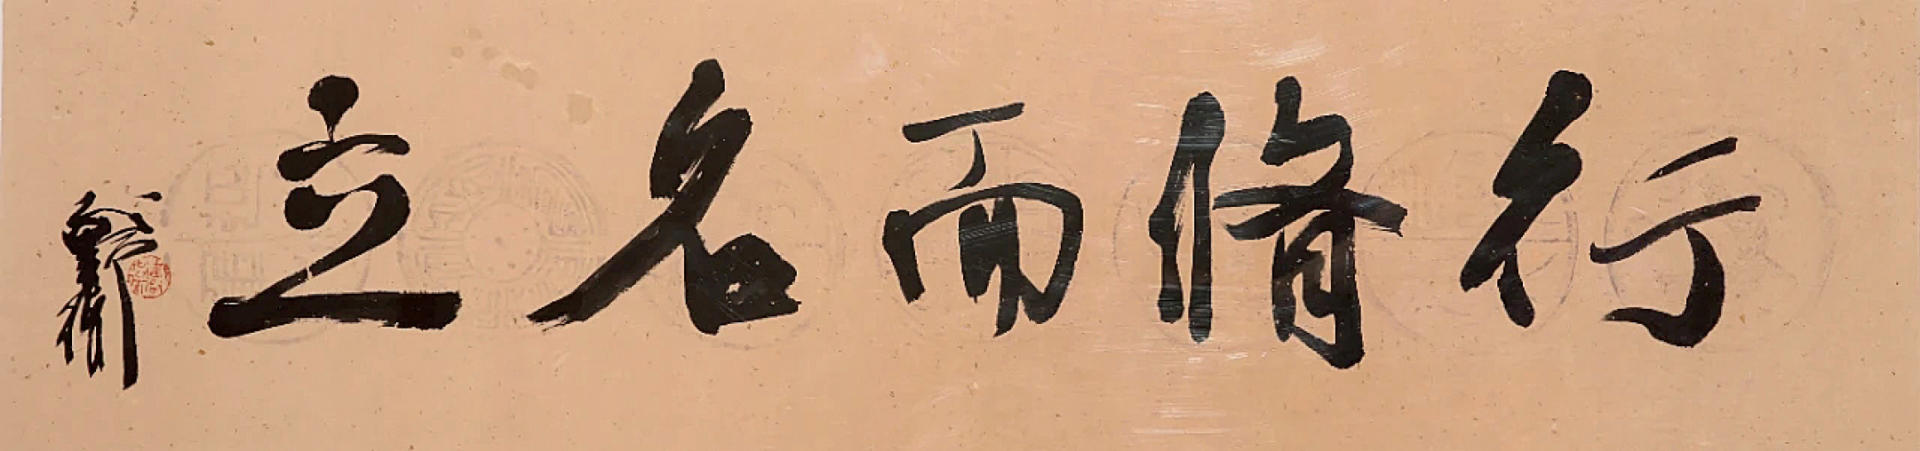 行脩而名立